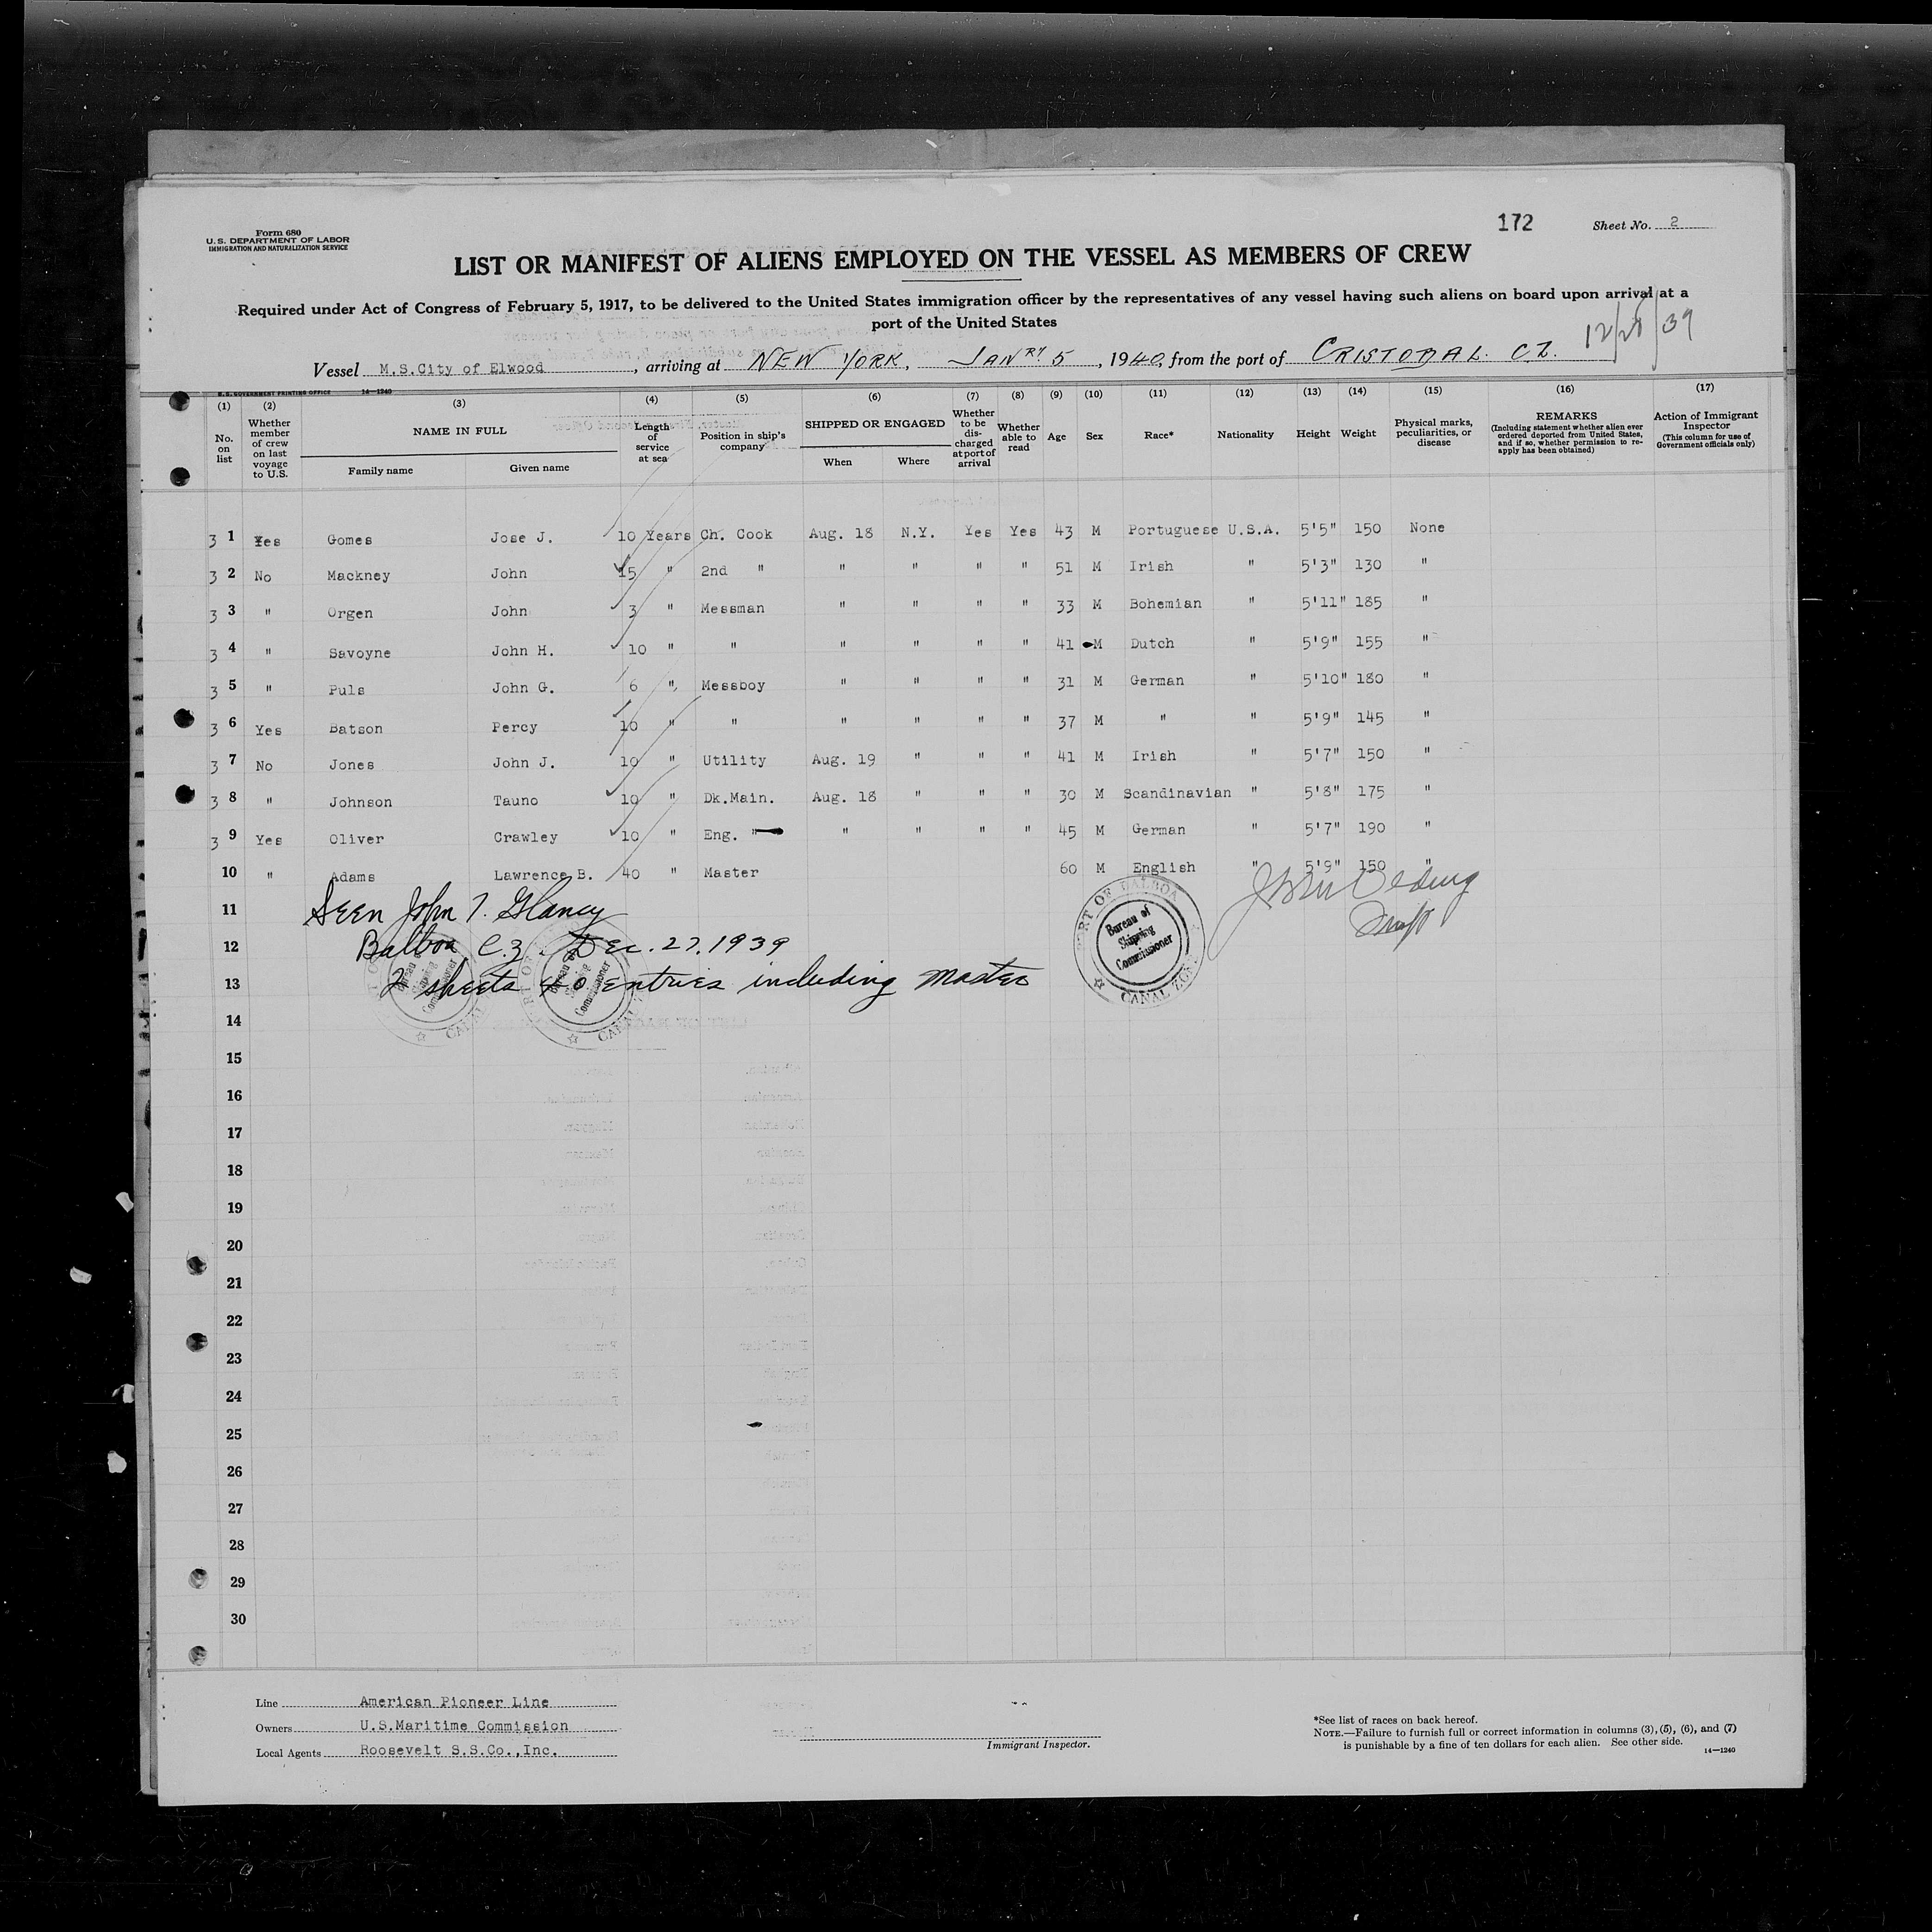 Form 680
U. S. DEPARTMENT OF LABOR
IMMIGRATION AND NATURALIZATION SERVICE
172
Sheet No. 2
LIST OR MANIFEST OF ALIENS EMPLOYED ON THE VESSEL AS MEMBERS OF CREW
Required under Act of Congress of February 5, 1917, to be delivered to the United States immigration officer by the representatives of any vessel having such aliens on board upon arrival at a
port of the United States
12/28/39
Vessel M.S.City of Elwood, arriving at NEW YORK, JANRY. 5, 1940, from the port of CRISTOBAL. C.Z.
U. S. GOVERNMENT PRINTING OFFICE 14—1240
(1) (2) (3) (4) (5) (6) (7) (8) (9) (10) (11) (12) (13) (14) (15) (16) (17)
No. on list
Whether member of crew on last voyage to U.S.
NAME IN FULL
Family name Given name
Length of service at sea
Position in ship's company
SHIPPED OR ENGAGED
When Where
Whether to be discharged at port of arrival
Whether able to read
Age
Sex
Race*
Nationality
Height
Weight
Physical marks, peculiarities, or disease
REMARKS
(Including statement whether alien ever ordered deported from United States, and if so, whether permission to re-apply has been obtained)
Action of Immigrant Inspector
(This column for use of Government officials only)
3 1 Yes Gomes Jose J. 10 Years Ch. Cook Aug. 18 N.Y. Yes Yes 43 M Portuguese U.S.A. 5'5" 150 None
3 2 No Mackney John 15 " 2nd " " " " " 51 M Irish " 5'3" 130 "
3 3 " Orgen John 3 " Messman " " " " 33 M Bohemian " 5'11" 185 "
3 4 " Savoyne John H. 10 " " " " " " 41 M Dutch " 5'9" 155 "
3 5 " Puls John G. 6 " Messboy " " " " 31 M German " 5'10" 180 "
3 6 Yes Batson Percy 10 " " " " " " 37 M " " 5'9" 145 "
3 7 No Jones John J. 10 " Utility Aug. 19 " " " 41 M Irish " 5'7" 150 "
3 8 " Johnson Tauno 10 " Dk.Main. Aug. 18 " " " 30 M Scandinavian " 5'8" 175 "
3 9 Yes Oliver Crawley 10 " Eng. " " " " " 45 M German " 5'7" 190 "
10 " Adams Lawrence B. 40 " Master 60 M English " 5'9" 150 "
11 Seen John T. Glancy
12 Balboa C.Z. Dec. 27, 1939
13 2 sheets 40 entries including master
PORT OF BALBOA
Bureau of
Shipping
Commissioner
CANAL ZONE
14
15
16
17
18
19
20
21
22
23
24
25
26
27
28
29
30
Line American Pioneer Line
Owners U.S.Maritime Commission
Local Agents Roosevelt S.S.Co.,Inc.
Immigrant Inspector.
*See list of races on back hereof.
NOTE.—Failure to furnish full or correct information in columns (3), (5), (6), and (7)
is punishable by a fine of ten dollars for each alien. See other side.
14—1240